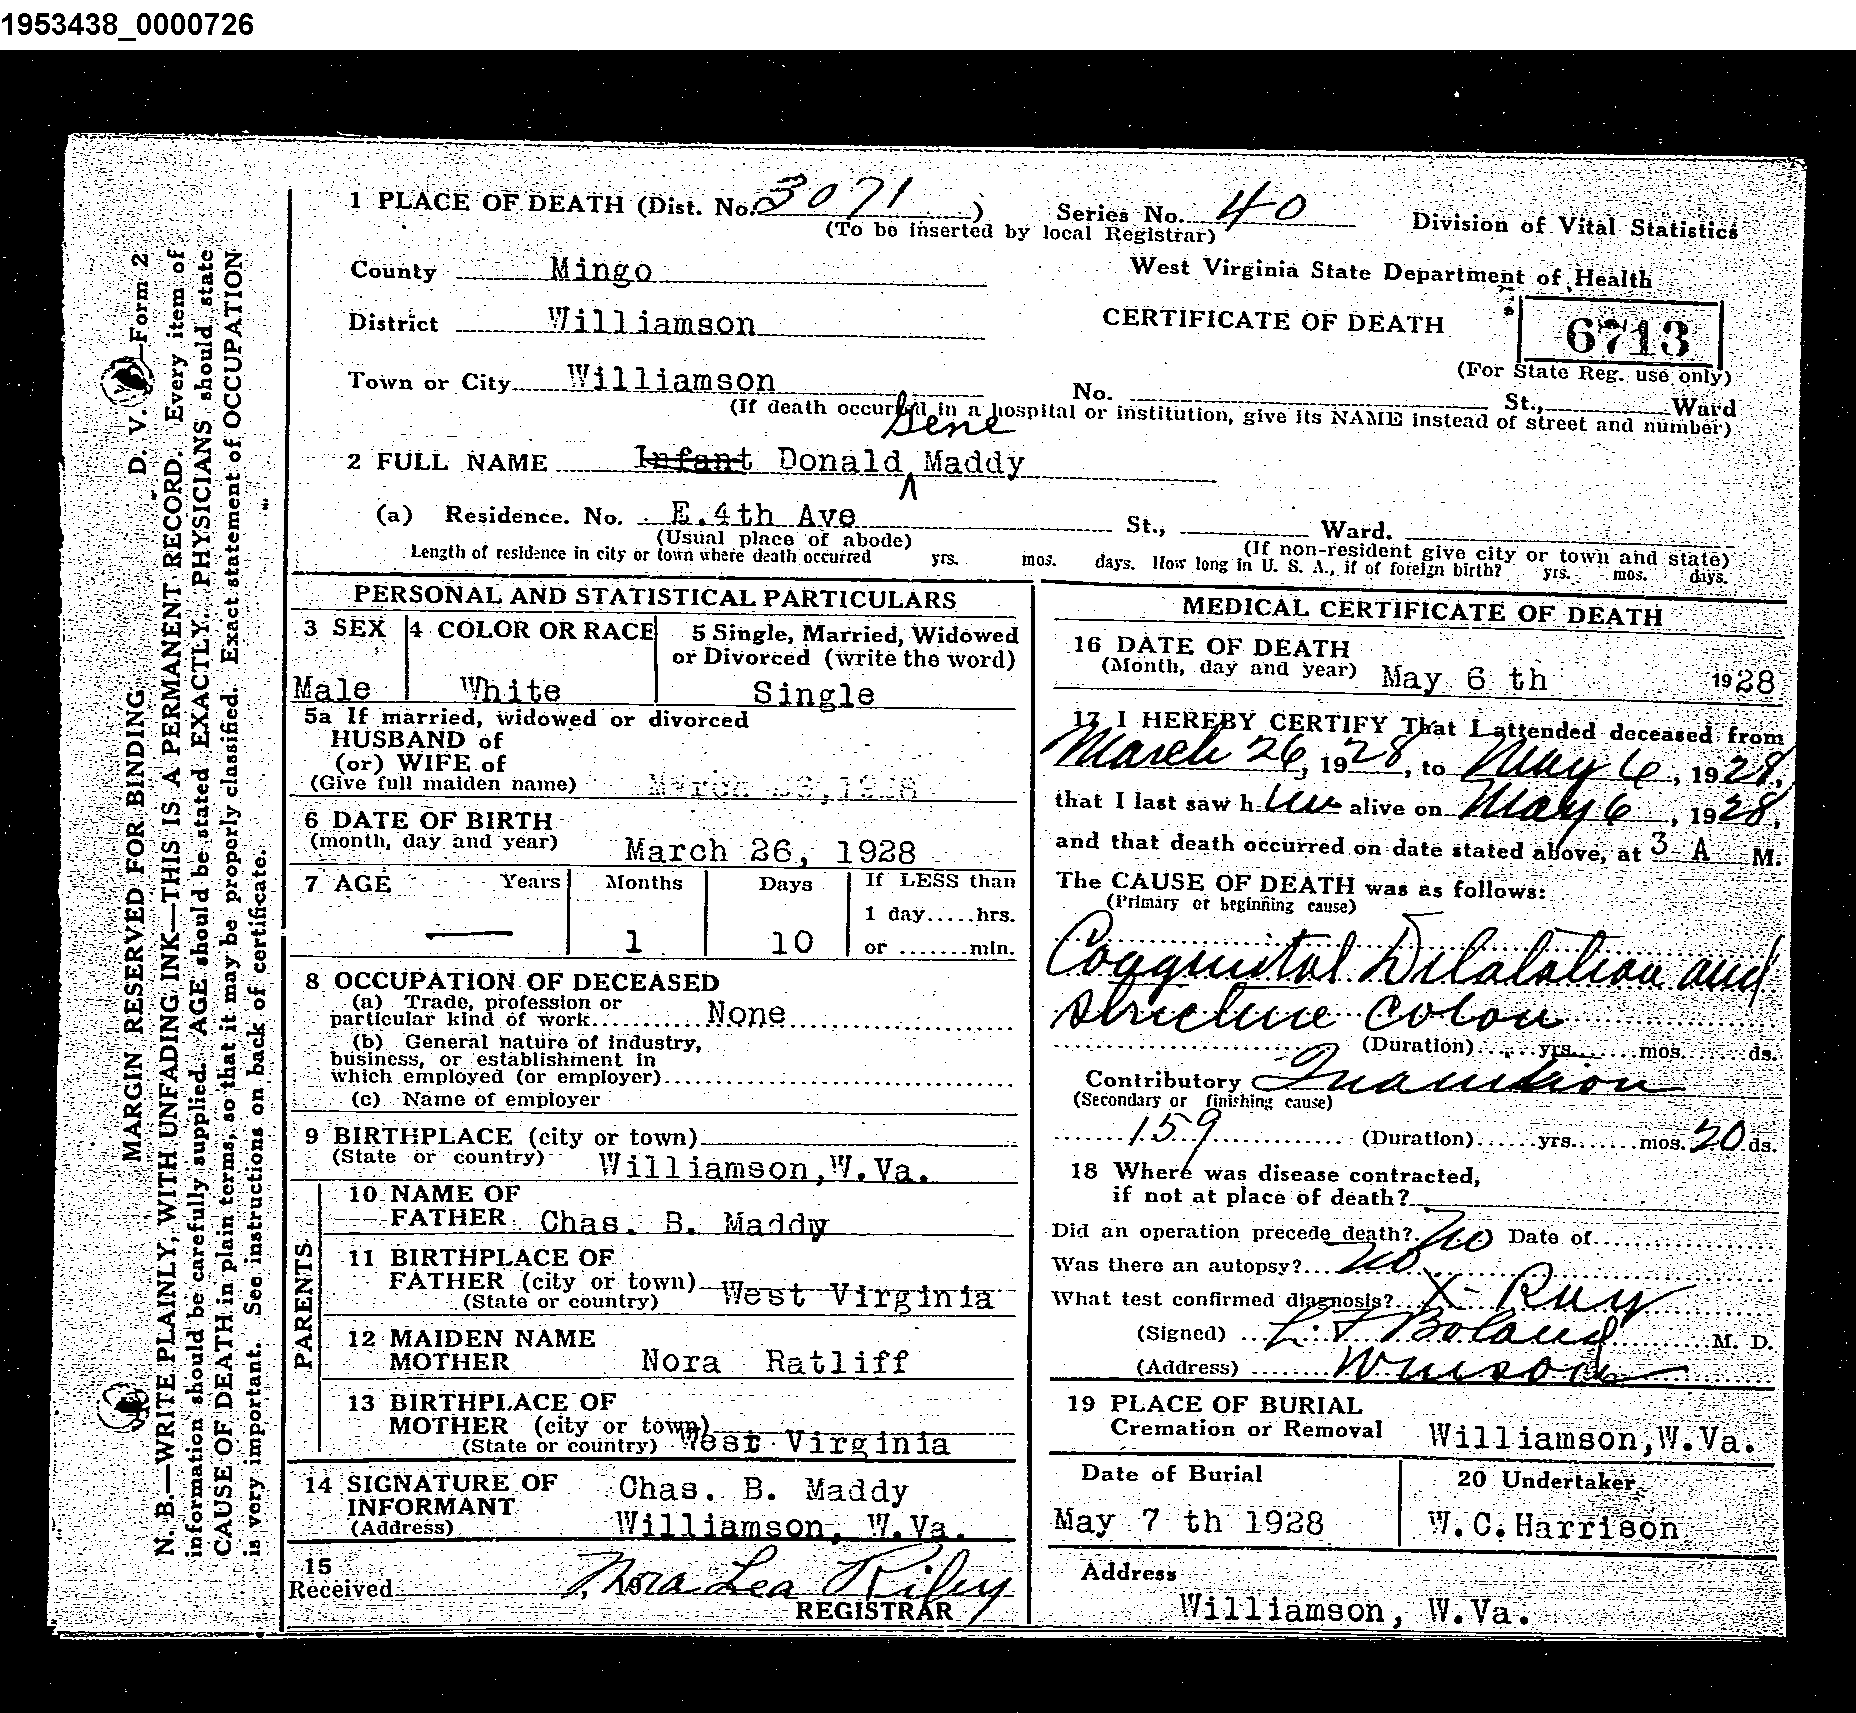 1953438_0000726
1 PLACE OF DEATH (Dist. No. 3071) Series No. 40 Division of Vital Statistics
(To be inserted by local Registrar)
County Mingo West Virginia State Department of Health
District Williamson CERTIFICATE OF DEATH 6713
(For State Reg. use only)
Town or City Williamson No. St., Ward
(If death occurred in a hospital or institution, give its NAME instead of street and number)
Gene
2 FULL NAME Infant Donald ^ Maddy
(a) Residence. No. E.4th Ave St., Ward.
(Usual place of abode) (If non-resident give city or town and state)
Length of residence in city or town where death occurred yrs. mos. days. How long in U. S. A., if of foreign birth? yrs. mos. days.
PERSONAL AND STATISTICAL PARTICULARS
3 SEX 4 COLOR OR RACE 5 Single, Married, Widowed
or Divorced (write the word)
Male White Single
5a If married, widowed or divorced
HUSBAND of
(or) WIFE of
(Give full maiden name) March 26,1928
6 DATE OF BIRTH
(month, day and year) March 26, 1928
7 AGE Years Months Days If LESS than
1 day.....hrs.
— 1 10 or .......min.
8 OCCUPATION OF DECEASED
(a) Trade, profession or
particular kind of work None
(b) General nature of industry,
business, or establishment in
which employed (or employer)
(c) Name of employer
9 BIRTHPLACE (city or town)
(State or country) Williamson,W.Va.
PARENTS
10 NAME OF
FATHER Chas. B. Maddy
11 BIRTHPLACE OF
FATHER (city or town) West Virginia
(State or country)
12 MAIDEN NAME
MOTHER Nora Ratliff
13 BIRTHPLACE OF
MOTHER (city or town)
(State or country) West Virginia
14 SIGNATURE OF Chas. B. Maddy
INFORMANT
(Address) Williamson, W.Va.
15
Received , 19 Nora Lea Riley
REGISTRAR
MEDICAL CERTIFICATE OF DEATH
16 DATE OF DEATH
(Month, day and year) May 6 th 1928
17 I HEREBY CERTIFY That I attended deceased from
March 26, 1928, to May 6, 1928,
that I last saw him alive on May 6, 1928,
and that death occurred on date stated above, at 3 A M.
The CAUSE OF DEATH was as follows:
(Primary or beginning cause)
Congenital Dilatation and
stricture colon
(Duration) yrs. mos. ds.
Contributory Inanition
(Secondary or finishing cause)
159 (Duration) yrs. mos. 20 ds.
18 Where was disease contracted,
if not at place of death?
Did an operation precede death? No Date of
Was there an autopsy? No
What test confirmed diagnosis? X-Ray
(Signed) L. F Boland M. D.
(Address) Wmson
19 PLACE OF BURIAL
Cremation or Removal Williamson,W.Va.
Date of Burial 20 Undertaker
May 7 th 1928 W.C.Harrison
Address
Williamson, W.Va.
D. V. S.—Form 2
MARGIN RESERVED FOR BINDING
N. B.—WRITE PLAINLY, WITH UNFADING INK—THIS IS A PERMANENT RECORD. Every item of
information should be carefully supplied. AGE should be stated EXACTLY. PHYSICIANS should state
CAUSE OF DEATH in plain terms, so that it may be properly classified. Exact statement of OCCUPATION
is very important. See instructions on back of certificate.